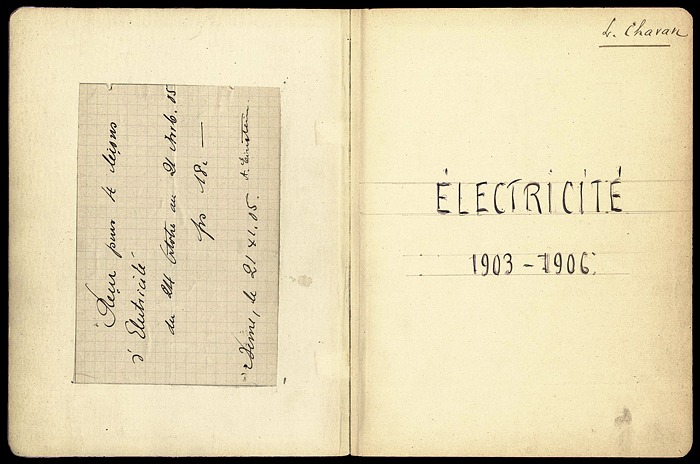 Reçu pour 4 leçons
d'Electricité
du 24 Octobre au 21 Novb. 05
frs 18.—
Berne, le 21 XI. 05. A. Einstein
L. Chavan
ÉLECTRICITÉ
1903 - 1906.